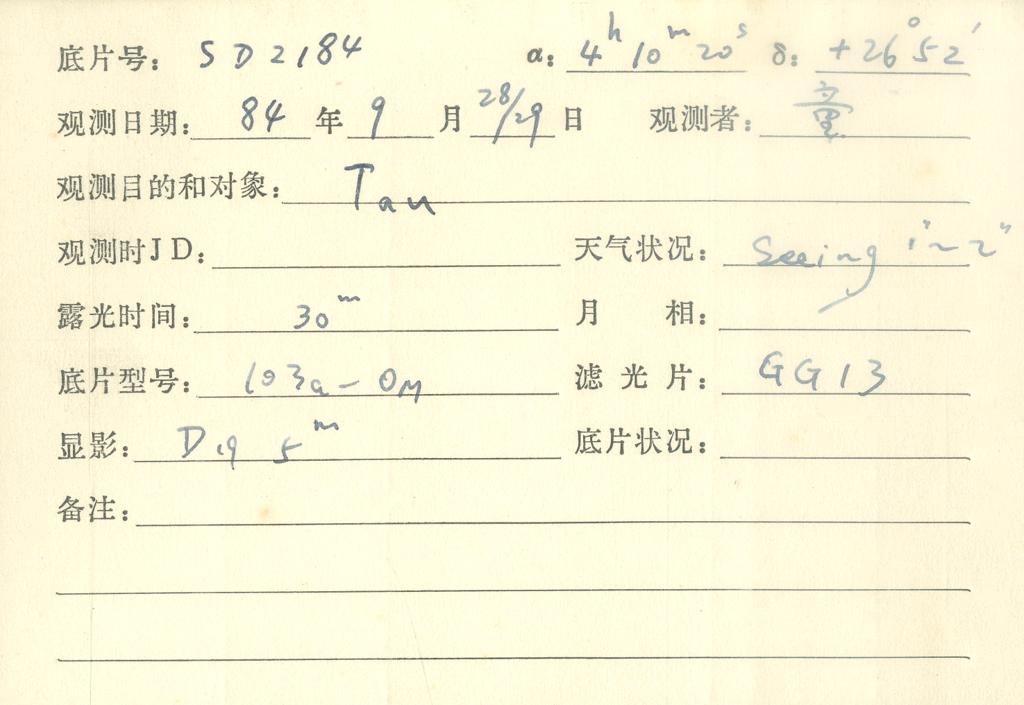 底片号: SD2184 α: 4ʰ10ᵐ20ˢ δ: +26°52′
观测日期: 84年9月28/29日 观测者: 童
观测目的和对象: Tau
观测时JD: 天气状况: Seeing 1″~2″
露光时间: 30ᵐ 月相:
底片型号: 103a-OM 滤光片: GG13
显影: D19 5ᵐ 底片状况:
备注: